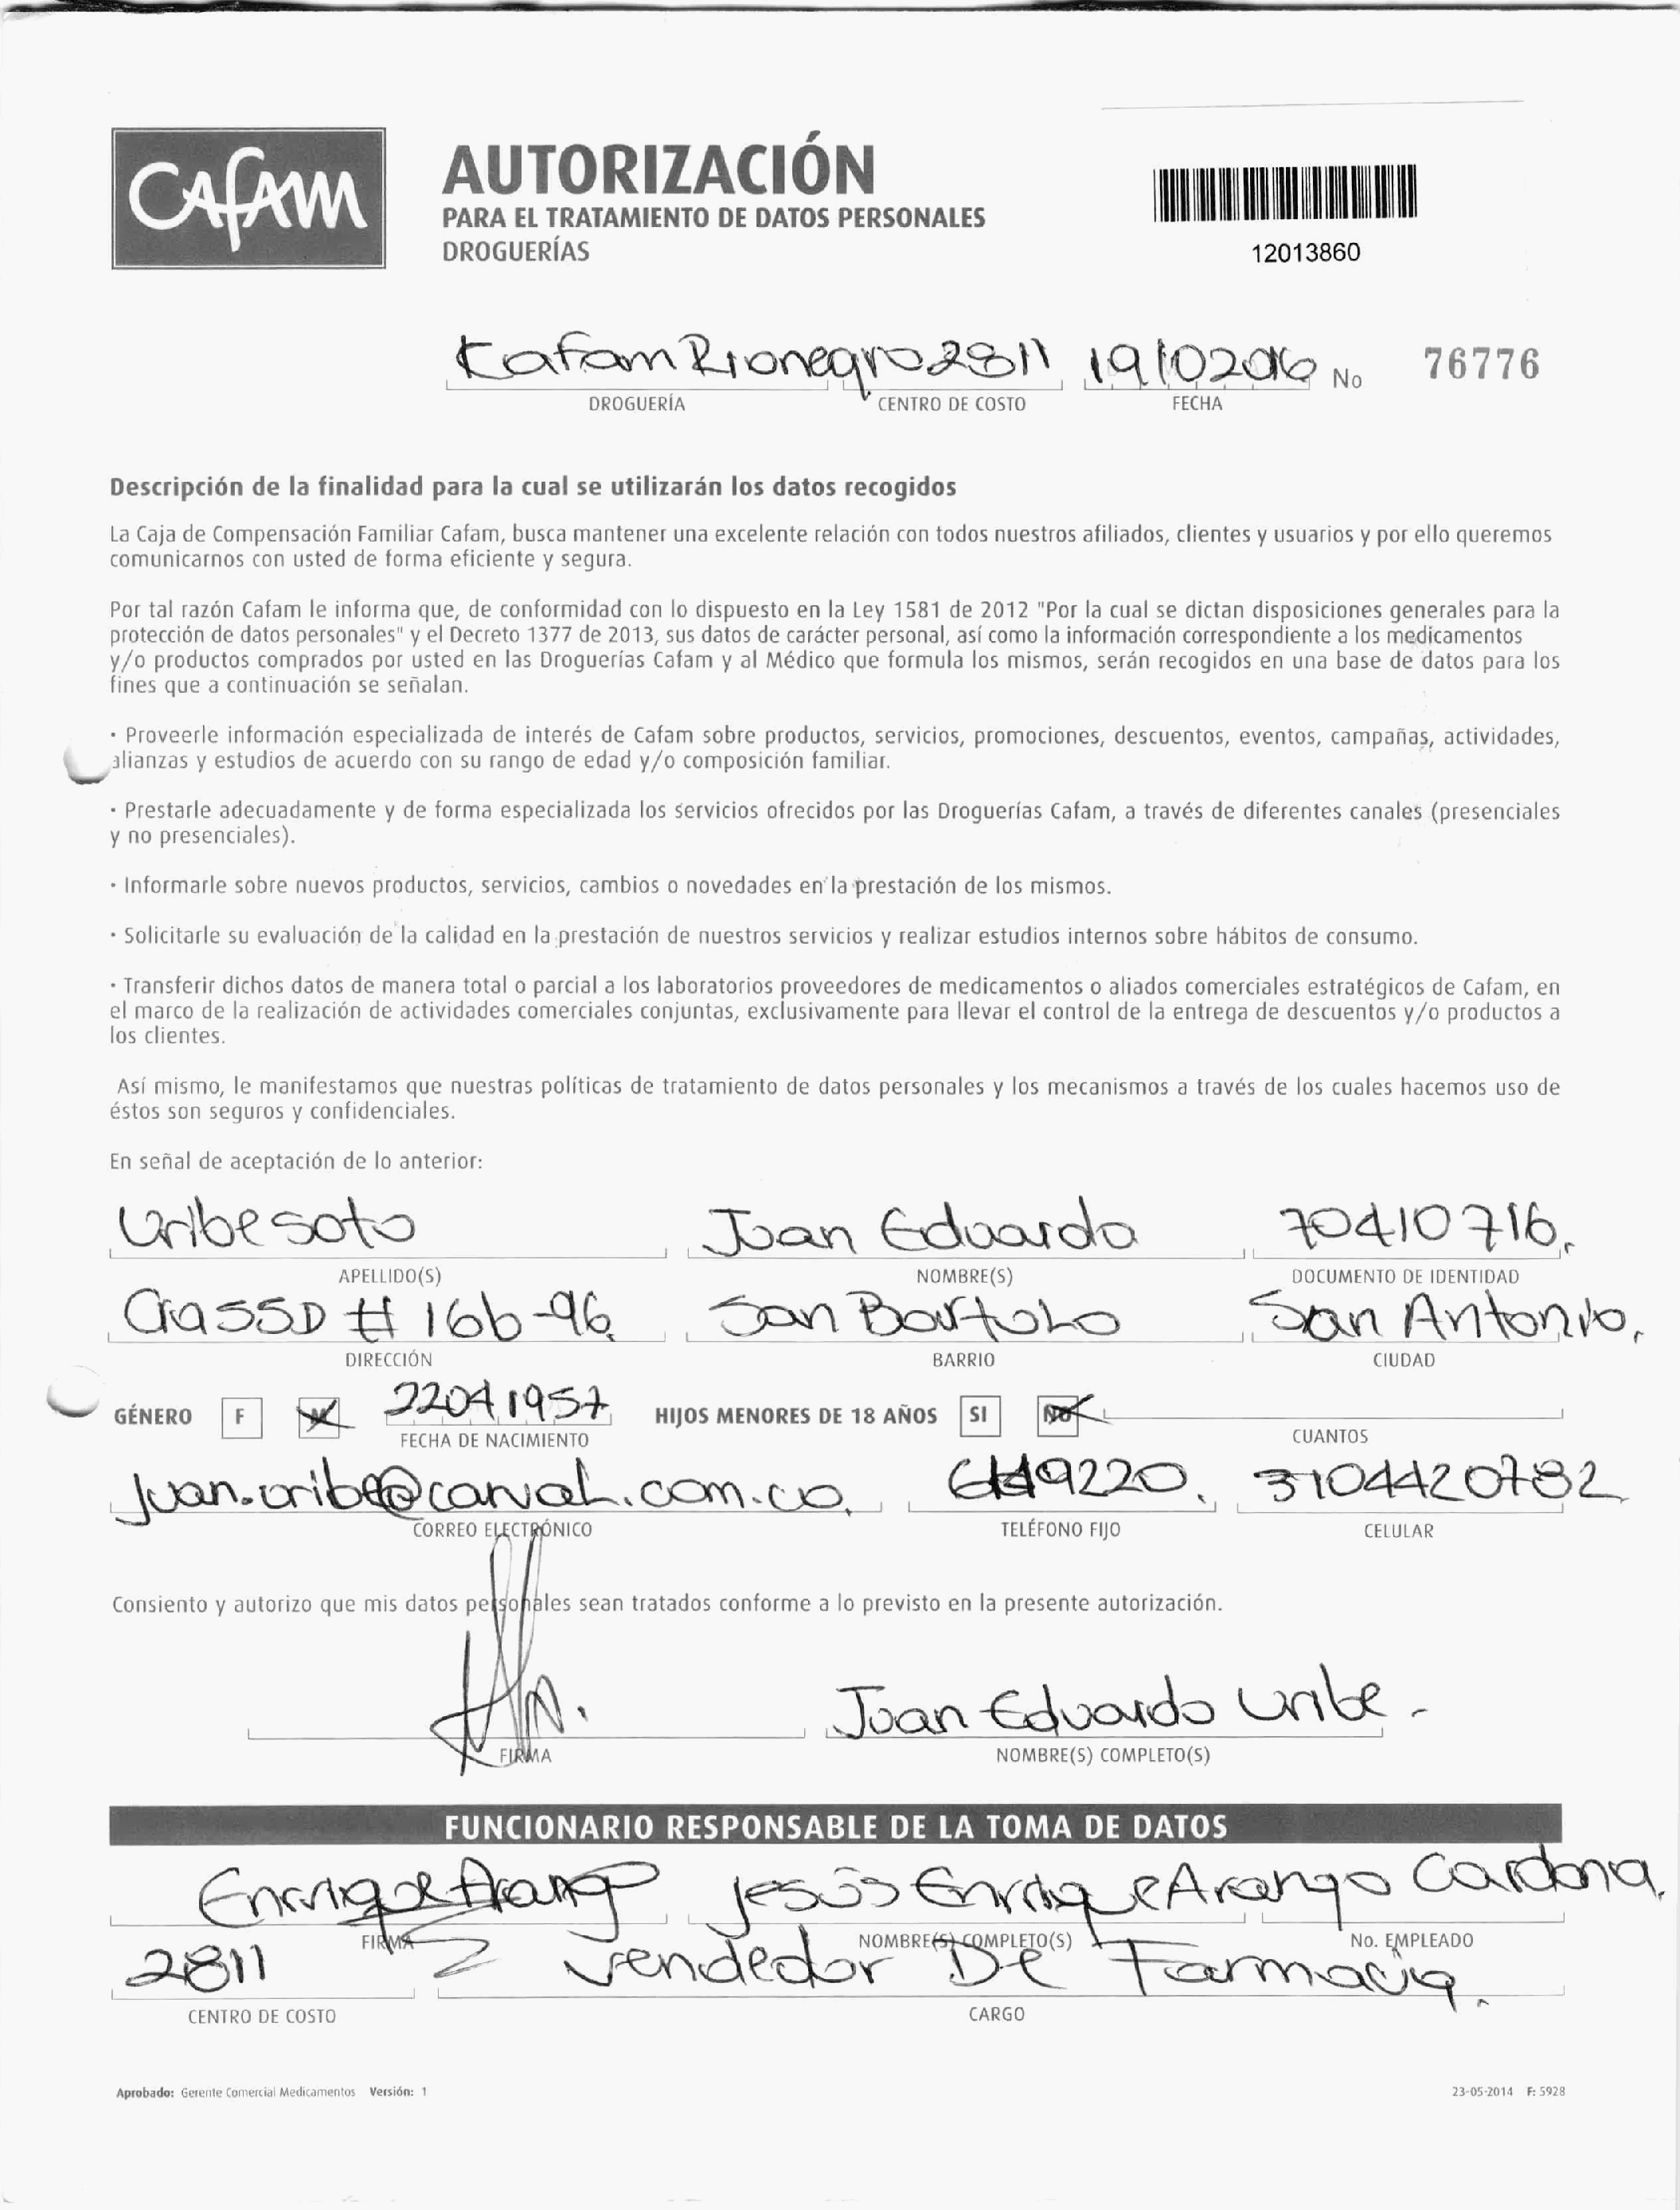 CAFAM
AUTORIZACIÓN
PARA EL TRATAMIENTO DE DATOS PERSONALES
DROGUERÍAS
12013860
Kafam Rionegro 2811 19102016 No 76776
DROGUERÍA CENTRO DE COSTO FECHA
Descripción de la finalidad para la cual se utilizarán los datos recogidos
La Caja de Compensación Familiar Cafam, busca mantener una excelente relación con todos nuestros afiliados, clientes y usuarios y por ello queremos
comunicarnos con usted de forma eficiente y segura.
Por tal razón Cafam le informa que, de conformidad con lo dispuesto en la Ley 1581 de 2012 "Por la cual se dictan disposiciones generales para la
protección de datos personales" y el Decreto 1377 de 2013, sus datos de carácter personal, así como la información correspondiente a los medicamentos
y/o productos comprados por usted en las Droguerías Cafam y al Médico que formula los mismos, serán recogidos en una base de datos para los
fines que a continuación se señalan.
· Proveerle información especializada de interés de Cafam sobre productos, servicios, promociones, descuentos, eventos, campañas, actividades,
alianzas y estudios de acuerdo con su rango de edad y/o composición familiar.
· Prestarle adecuadamente y de forma especializada los servicios ofrecidos por las Droguerías Cafam, a través de diferentes canales (presenciales
y no presenciales).
· Informarle sobre nuevos productos, servicios, cambios o novedades en la prestación de los mismos.
· Solicitarle su evaluación de la calidad en la prestación de nuestros servicios y realizar estudios internos sobre hábitos de consumo.
· Transferir dichos datos de manera total o parcial a los laboratorios proveedores de medicamentos o aliados comerciales estratégicos de Cafam, en
el marco de la realización de actividades comerciales conjuntas, exclusivamente para llevar el control de la entrega de descuentos y/o productos a
los clientes.
Así mismo, le manifestamos que nuestras políticas de tratamiento de datos personales y los mecanismos a través de los cuales hacemos uso de
éstos son seguros y confidenciales.
En señal de aceptación de lo anterior:
Uribe soto Juan Eduardo 70410716.
APELLIDO(S) NOMBRE(S) DOCUMENTO DE IDENTIDAD
Cra 55D # 16b-96 San Bartolo San Antonio.
DIRECCIÓN BARRIO CIUDAD
GÉNERO F M 22041957 HIJOS MENORES DE 18 AÑOS SI NO
FECHA DE NACIMIENTO CUANTOS
juan.uribe@carval.com.co. 3104420782
CORREO ELECTRÓNICO TELÉFONO FIJO CELULAR
Consiento y autorizo que mis datos personales sean tratados conforme a lo previsto en la presente autorización.
Juan Eduardo Uribe.
FIRMA NOMBRE(S) COMPLETO(S)
FUNCIONARIO RESPONSABLE DE LA TOMA DE DATOS
Enrrique Arango Jesús Enrrique Arango Cardona.
FIRMA NOMBRE(S) COMPLETO(S) No. EMPLEADO
2811 Vendedor De Farmacia.
CENTRO DE COSTO CARGO
Aprobado: Gerente Comercial Medicamentos Versión: 1 23-05-2014 F: 5928